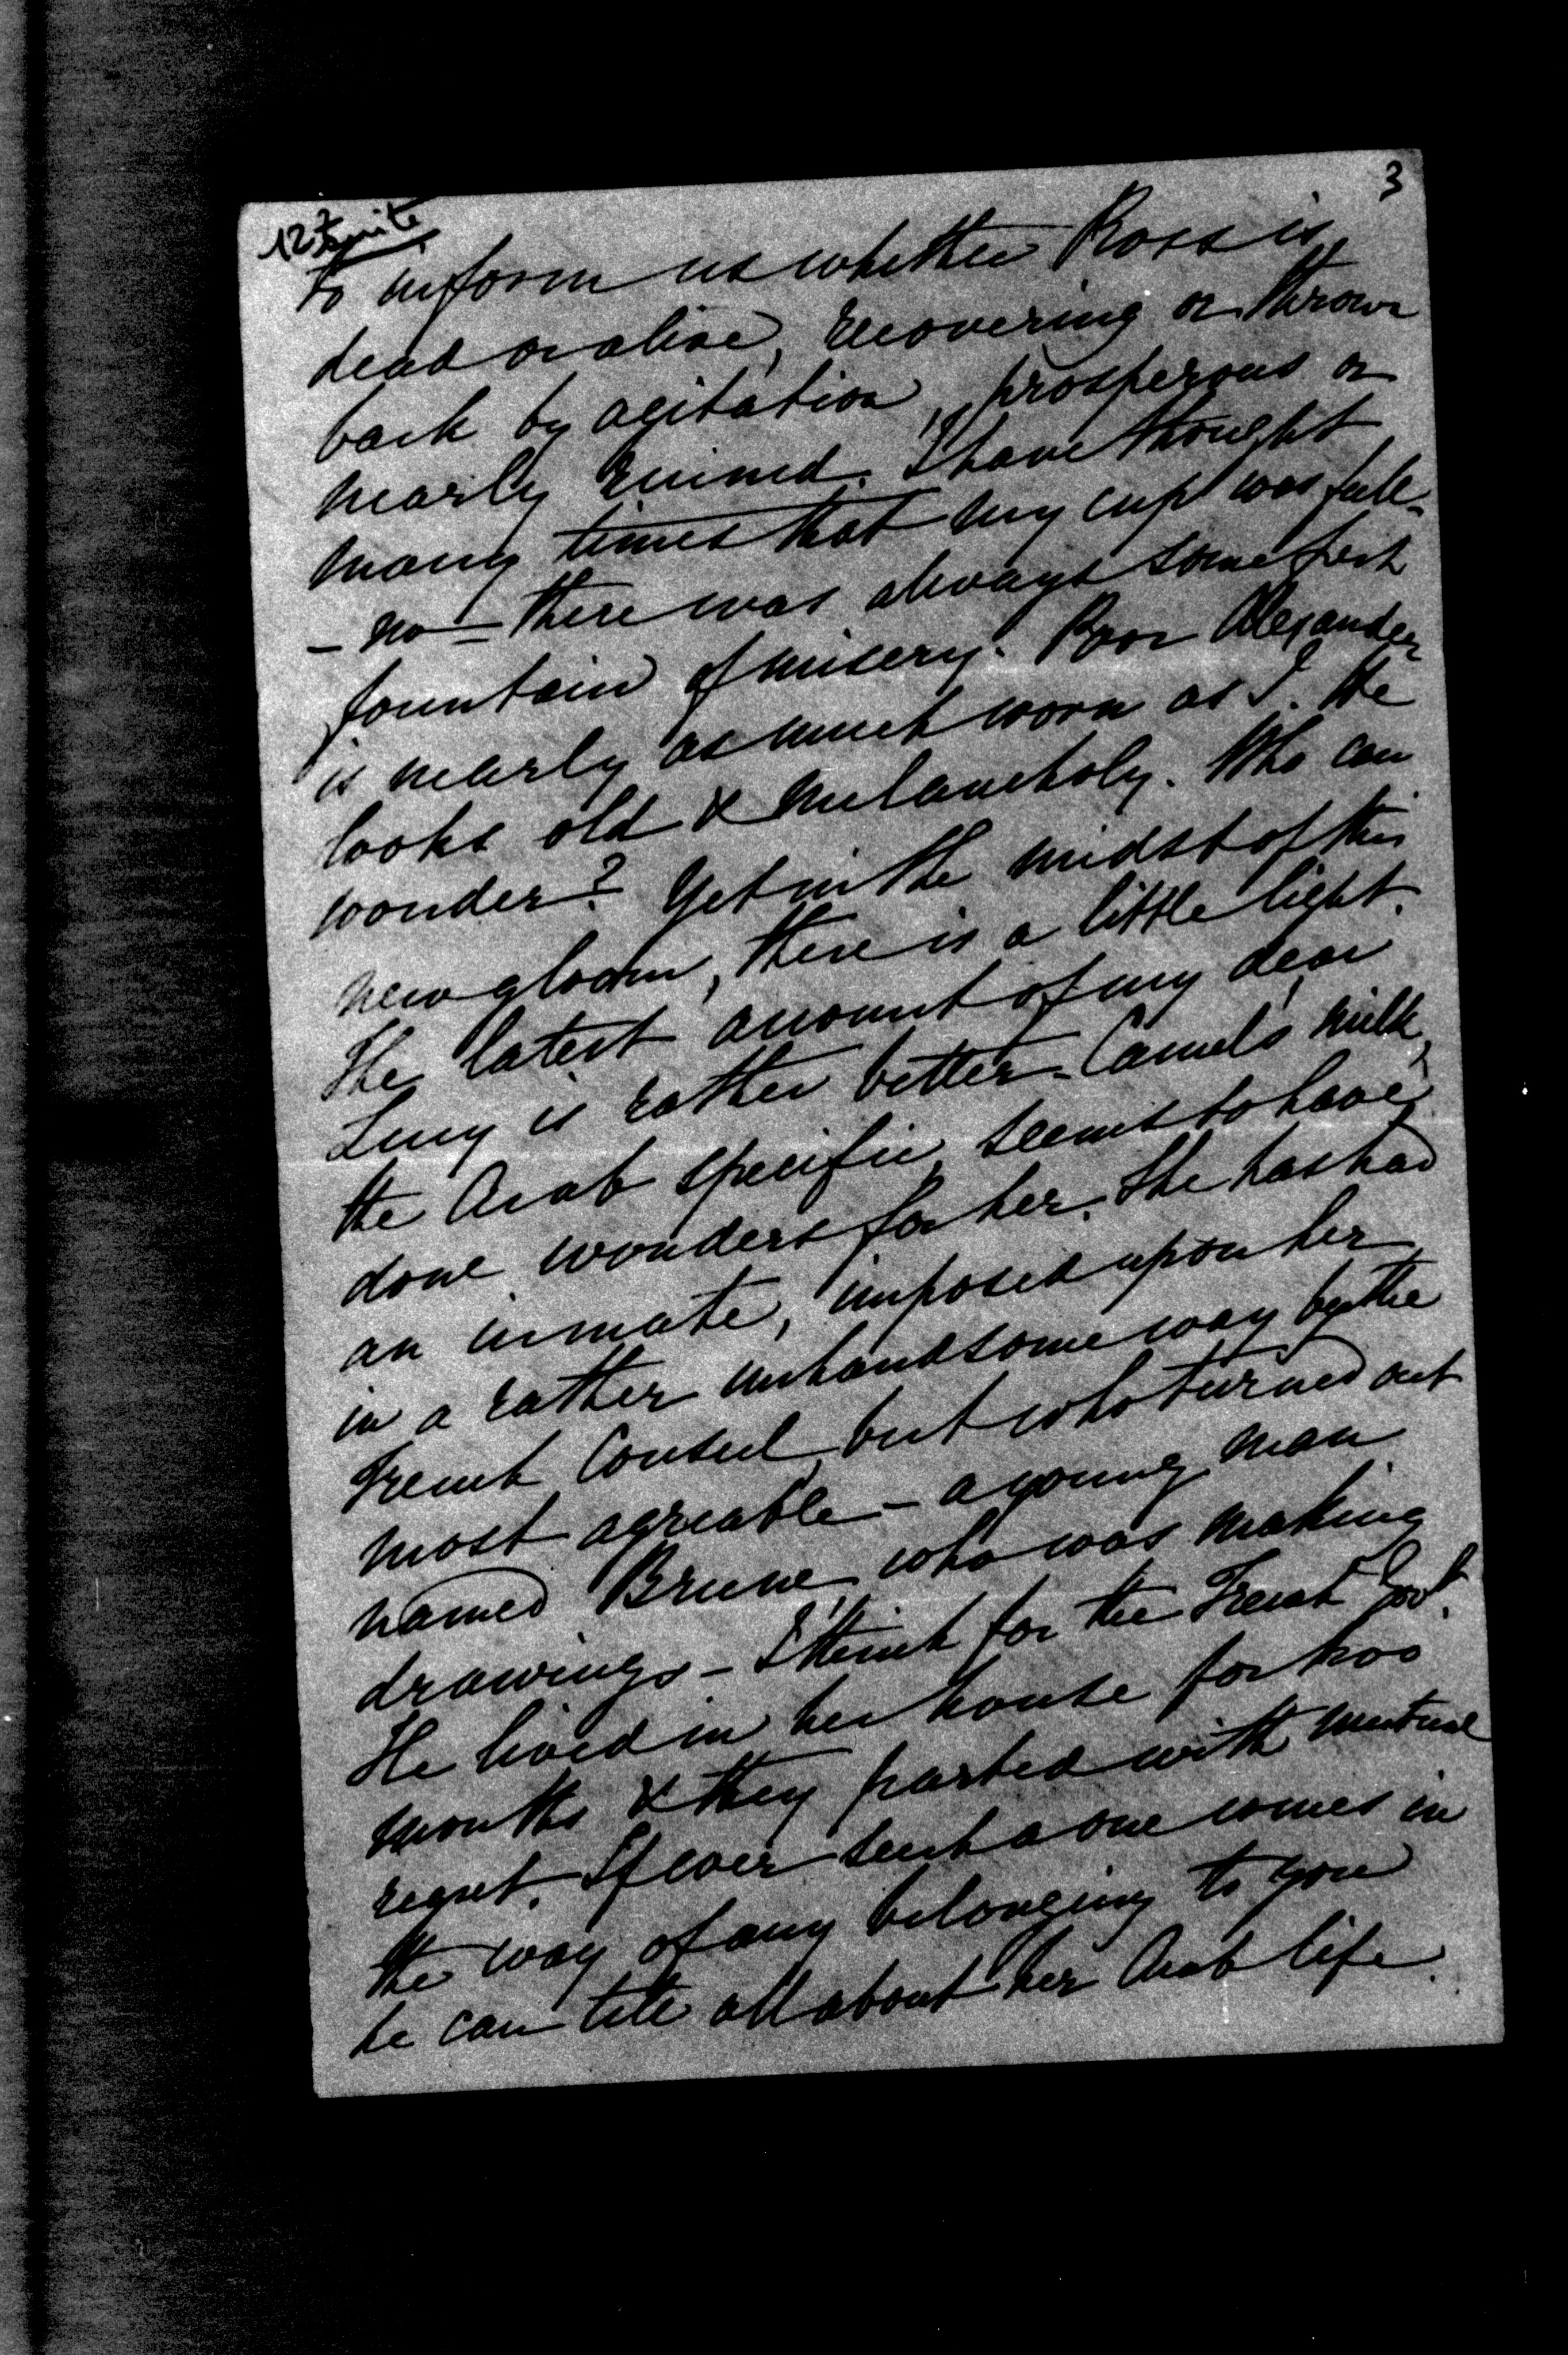 3
12 suite
to inform us whether Ross is
dead or alive, recovering or thrown
back by agitation, prosperous or
nearly ruined. I have thought
many times that my cup was full –
– no – there was always some fresh
fountain of misery. Poor Alexander
is nearly as much worn as I. He
looks old & melancholy. Who can
wonder? Yet in the midst of this
new gloom, there is a little light.
The latest account of my dear
Lucy is rather better – Camel's milk,
the Arab specific, seems to have
done wonders for her. She has had
an inmate, imposed upon her
in a rather unhandsome way by the
French Consul, but who turned out
most agreable – a young man
named Brune, who was making
drawings – I think for the French Govt.
He lived in her house for two
months & they parted with mutual
regret. If ever such a one comes in
the way of any belonging to you
he can tell all about her Arab life.